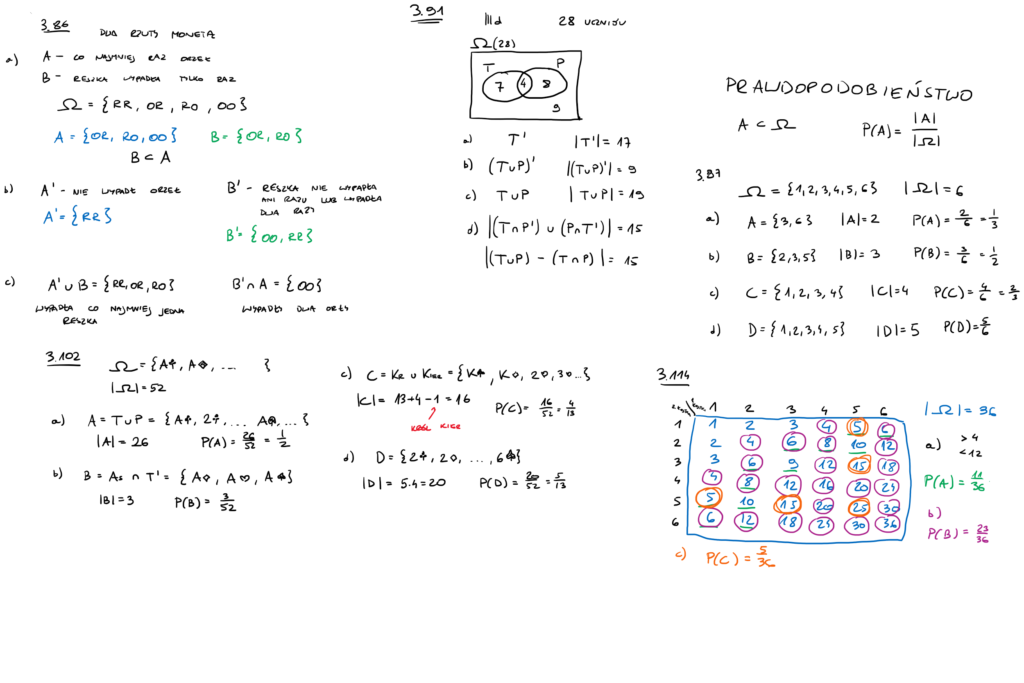 3.86 DWA RZUTY MONETĄ
a) A - CO NAJMNIEJ RAZ ORZEŁ
B - RESZKA WYPADŁA TYLKO RAZ
Ω = {RR, OR, RO, OO}
A = {OR, RO, OO} B = {OR, RO}
B ⊂ A
b) A' - NIE WYPADŁ ORZEŁ
A' = {RR}
B' - RESZKA NIE WYPADŁA
ANI RAZU LUB WYPADŁA
DWA RAZY
B' = {OO, RR}
c) A' ∪ B = {RR, OR, RO} B' ∩ A = {OO}
WYPADŁA CO NAJMNIEJ JEDNA
RESZKA
WYPADŁY DWA ORŁY
3.91 IIId 28 UCZNIÓW
Ω (28)
T P
7 4 8
9
a) T' |T'| = 17
b) (T∪P)' |(T∪P)'| = 9
c) T∪P |T∪P| = 19
d) |(T∩P') ∪ (P∩T')| = 15
|(T∪P) - (T∩P)| = 15
PRAWDOPODOBIEŃSTWO
A ⊂ Ω P(A) = |A|/|Ω|
3.97
Ω = {1, 2, 3, 4, 5, 6} |Ω| = 6
a) A = {3, 6} |A| = 2 P(A) = 2/6 = 1/3
b) B = {2, 3, 5} |B| = 3 P(B) = 3/6 = 1/2
c) C = {1, 2, 3, 4} |C| = 4 P(C) = 4/6 = 2/3
d) D = {1, 2, 3, 4, 5} |D| = 5 P(D) = 5/6
3.102 Ω = {A♣, A♦, ... }
|Ω| = 52
a) A = T∪P = {A♣, 2♣, ... A♠, ...}
|A| = 26 P(A) = 26/52 = 1/2
b) B = As ∩ T' = {A♦, A♥, A♠}
|B| = 3 P(B) = 3/52
c) C = KR ∪ KIER = {K♣, K♦, 2♥, 3♥...}
|C| = 13+4-1 = 16 P(C) = 16/52 = 4/13
KRÓL KIER
d) D = {2♣, 2♦, ..., 6♠}
|D| = 5·4 = 20 P(D) = 20/52 = 5/13
3.114
1 2 3 4 5 6
1 1 2 3 4 5 6
2 2 4 6 8 10 12
3 3 6 9 12 15 18
4 4 8 12 16 20 24
5 5 10 15 20 25 30
6 6 12 18 24 30 36
|Ω| = 36
a) > 4
< 12
P(A) = 11/36
b)
P(B) = 23/36
c) P(C) = 5/36